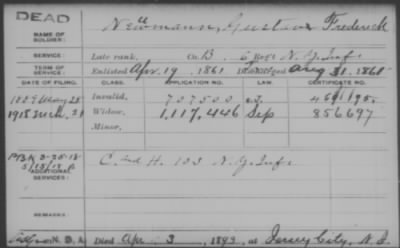 DEAD
NAME OF SOLDIER: Newmann, Gustave Frederick
SERVICE: Late rank, Co. B. 6 Reg't N.Y. Inf.
TERM OF SERVICE: Enlisted Apr. 19, 1861 Discharged Aug 31, 1861
DATE OF FILING. CLASS. APPLICATION NO. LAW. CERTIFICATE NO.
Invalid, 707500
1918 Mch. 21 Widow, 1,117,446 Sep 856697
Minor,
ADDITIONAL SERVICES: C. and H. 133 N.Y. Inf.
REMARKS:
Died Apr. 3, 1893, at Jersey City, N.J.